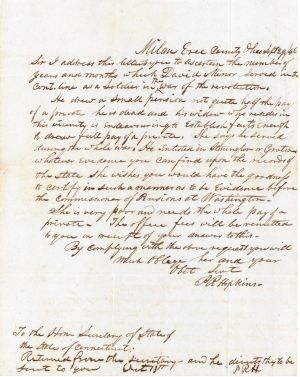 Milan Erie County Ohio Sept 29/46
Sir I address this letter to you to ascertain the number of
years and months which David Minor served in the
Cont. line as a Soldier in War of the revolution.
He drew a small pension not quite half the pay
of a private he is dead and his widow who resides in
this vicinity is endeavouring to establish facts enough
to draw full pay of a private. She says he served
during the whole war. He enlisted in Stonington or Groton
whatever evidence you can find upon the records of
the State She wishes you would have the goodness
to certify in such a manner as to be Evidence before
the Commissioner of Pensions at Washington.
She is very poor and needs the whole pay of a
private. The office fees will be remitted
to you on receipt of your answer to this.
By complying with the above request you will
Much Oblige her and your
Obt Svt
P R Hopkins.
To the Hon Secretary of State of
the State of Connecticut.
Returned from the Secretary and he directs they to be
sent to you Oct 1st P.R.H